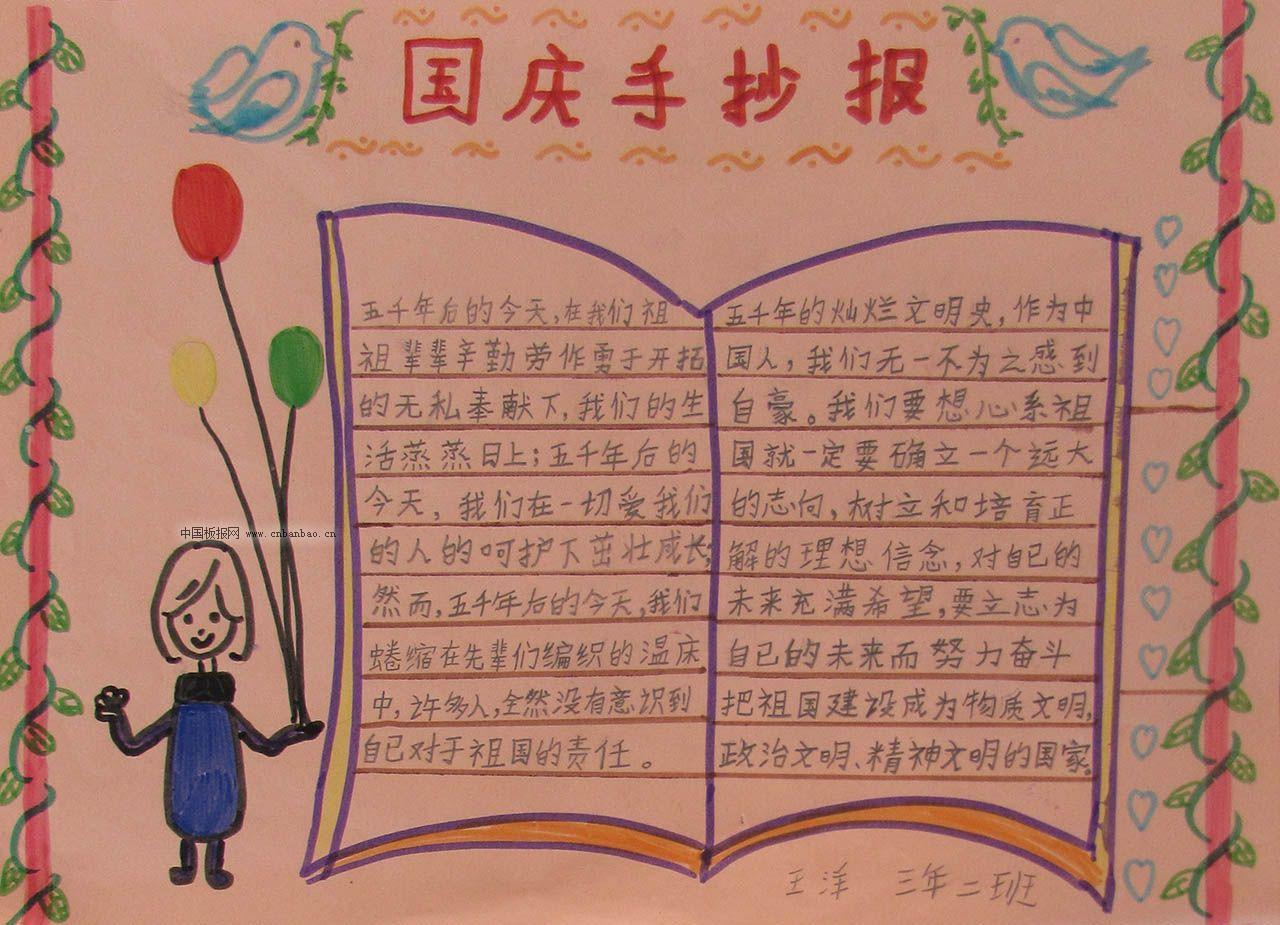 国庆手抄报
五千年后的今天,在我们祖
祖辈辈辛勤劳作勇于开拓
的无私奉献下,我们的生
活蒸蒸日上;五千年后的
今天,我们在一切爱我们
的人的呵护下茁壮成长;
然而,五千年后的今天,我们
蜷缩在先辈们编织的温床
中,许多人,全然没有意识到
自已对于祖国的责任。
五千年的灿烂文明史,作为中
国人,我们无一不为之感到
自豪。我们要想心系祖
国就一定要确立一个远大
的志向,树立和培育正
解的理想信念,对自己的
未来充满希望,要立志为
自己的未来而努力奋斗
把祖国建设成为物质文明,
政治文明、精神文明的国家。
王洋 三年二班
中国板报网 www.cnbanbao.cn